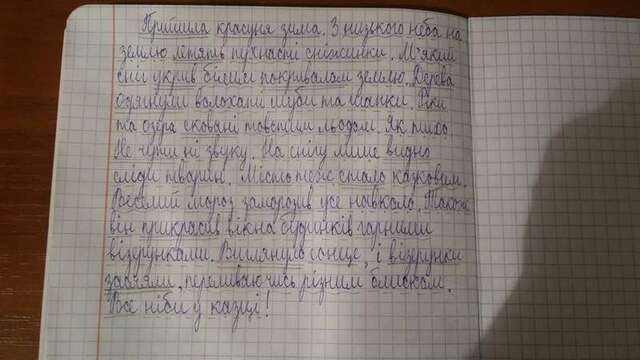 Прийшла красуня зима. З низького неба на
землю летять пухнасті сніжинки. М'який
сніг укрив білим покривалом землю. Дерева
одягнули волохаті шуби та шапки. Ріки
та озера сковані товстим льодом. Як тихо
Не чути ні звуку. На снігу лише видно
сліди тварин. Місто теж стало казковим.
Веселий мороз заморозив усе навколо. Також
він прикрасив вікна будинків гарними
візерунками. Виглянуло сонце, і візерунки
засяяли, переливаючись різним блиском.
Все ніби у казці!